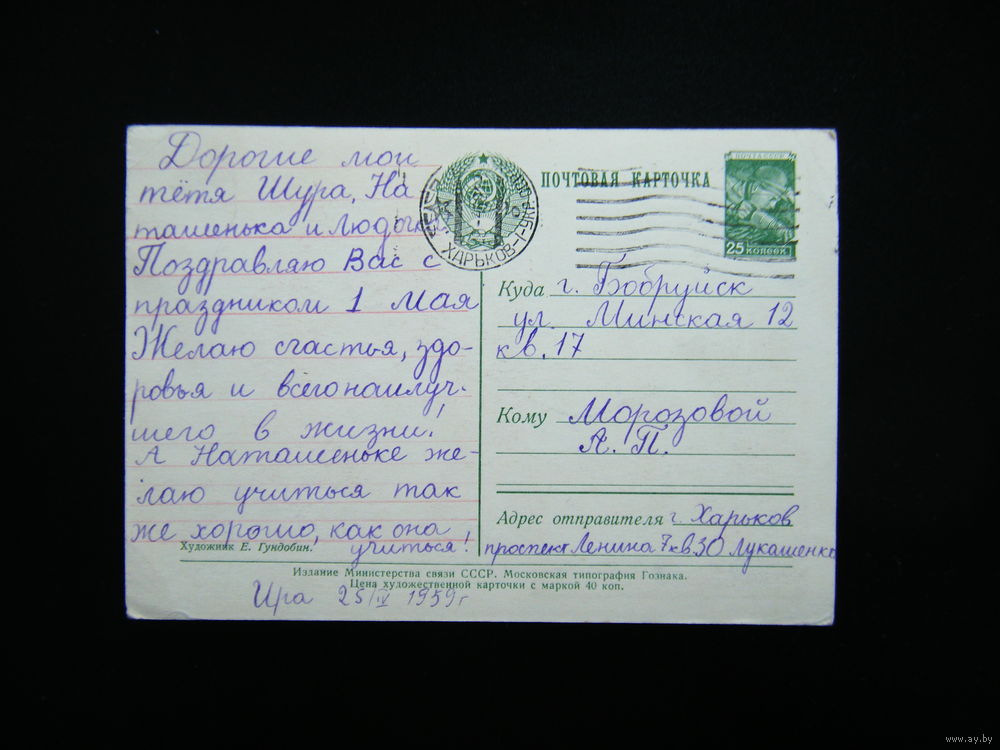 Дорогие мои
тётя Шура, На
ташенька и Людочка
Поздравляю Вас с
праздником 1 Мая
Желаю счастья, здо-
ровья и всего наилуч.
шего в жизни!
А Наташеньке же-
лаю учиться так
же хорошо, как она
учиться!
Художник Е. Гундобин.
Ира 25/IV 1959 г
ХАРЬКОВ-1-УКР.
ПОЧТОВАЯ КАРТОЧКА
ПОЧТА СССР
25 КОПЕЕК
Куда г. Бобруйск
ул. Минская 12
кв. 17
Кому Морозовой
А. П.
Адрес отправителя г. Харьков
проспект Ленина 7 кв 30 Лукашенко
Издание Министерства связи СССР. Московская типография Гознака.
Цена художественной карточки с маркой 40 коп.
www.ay.by